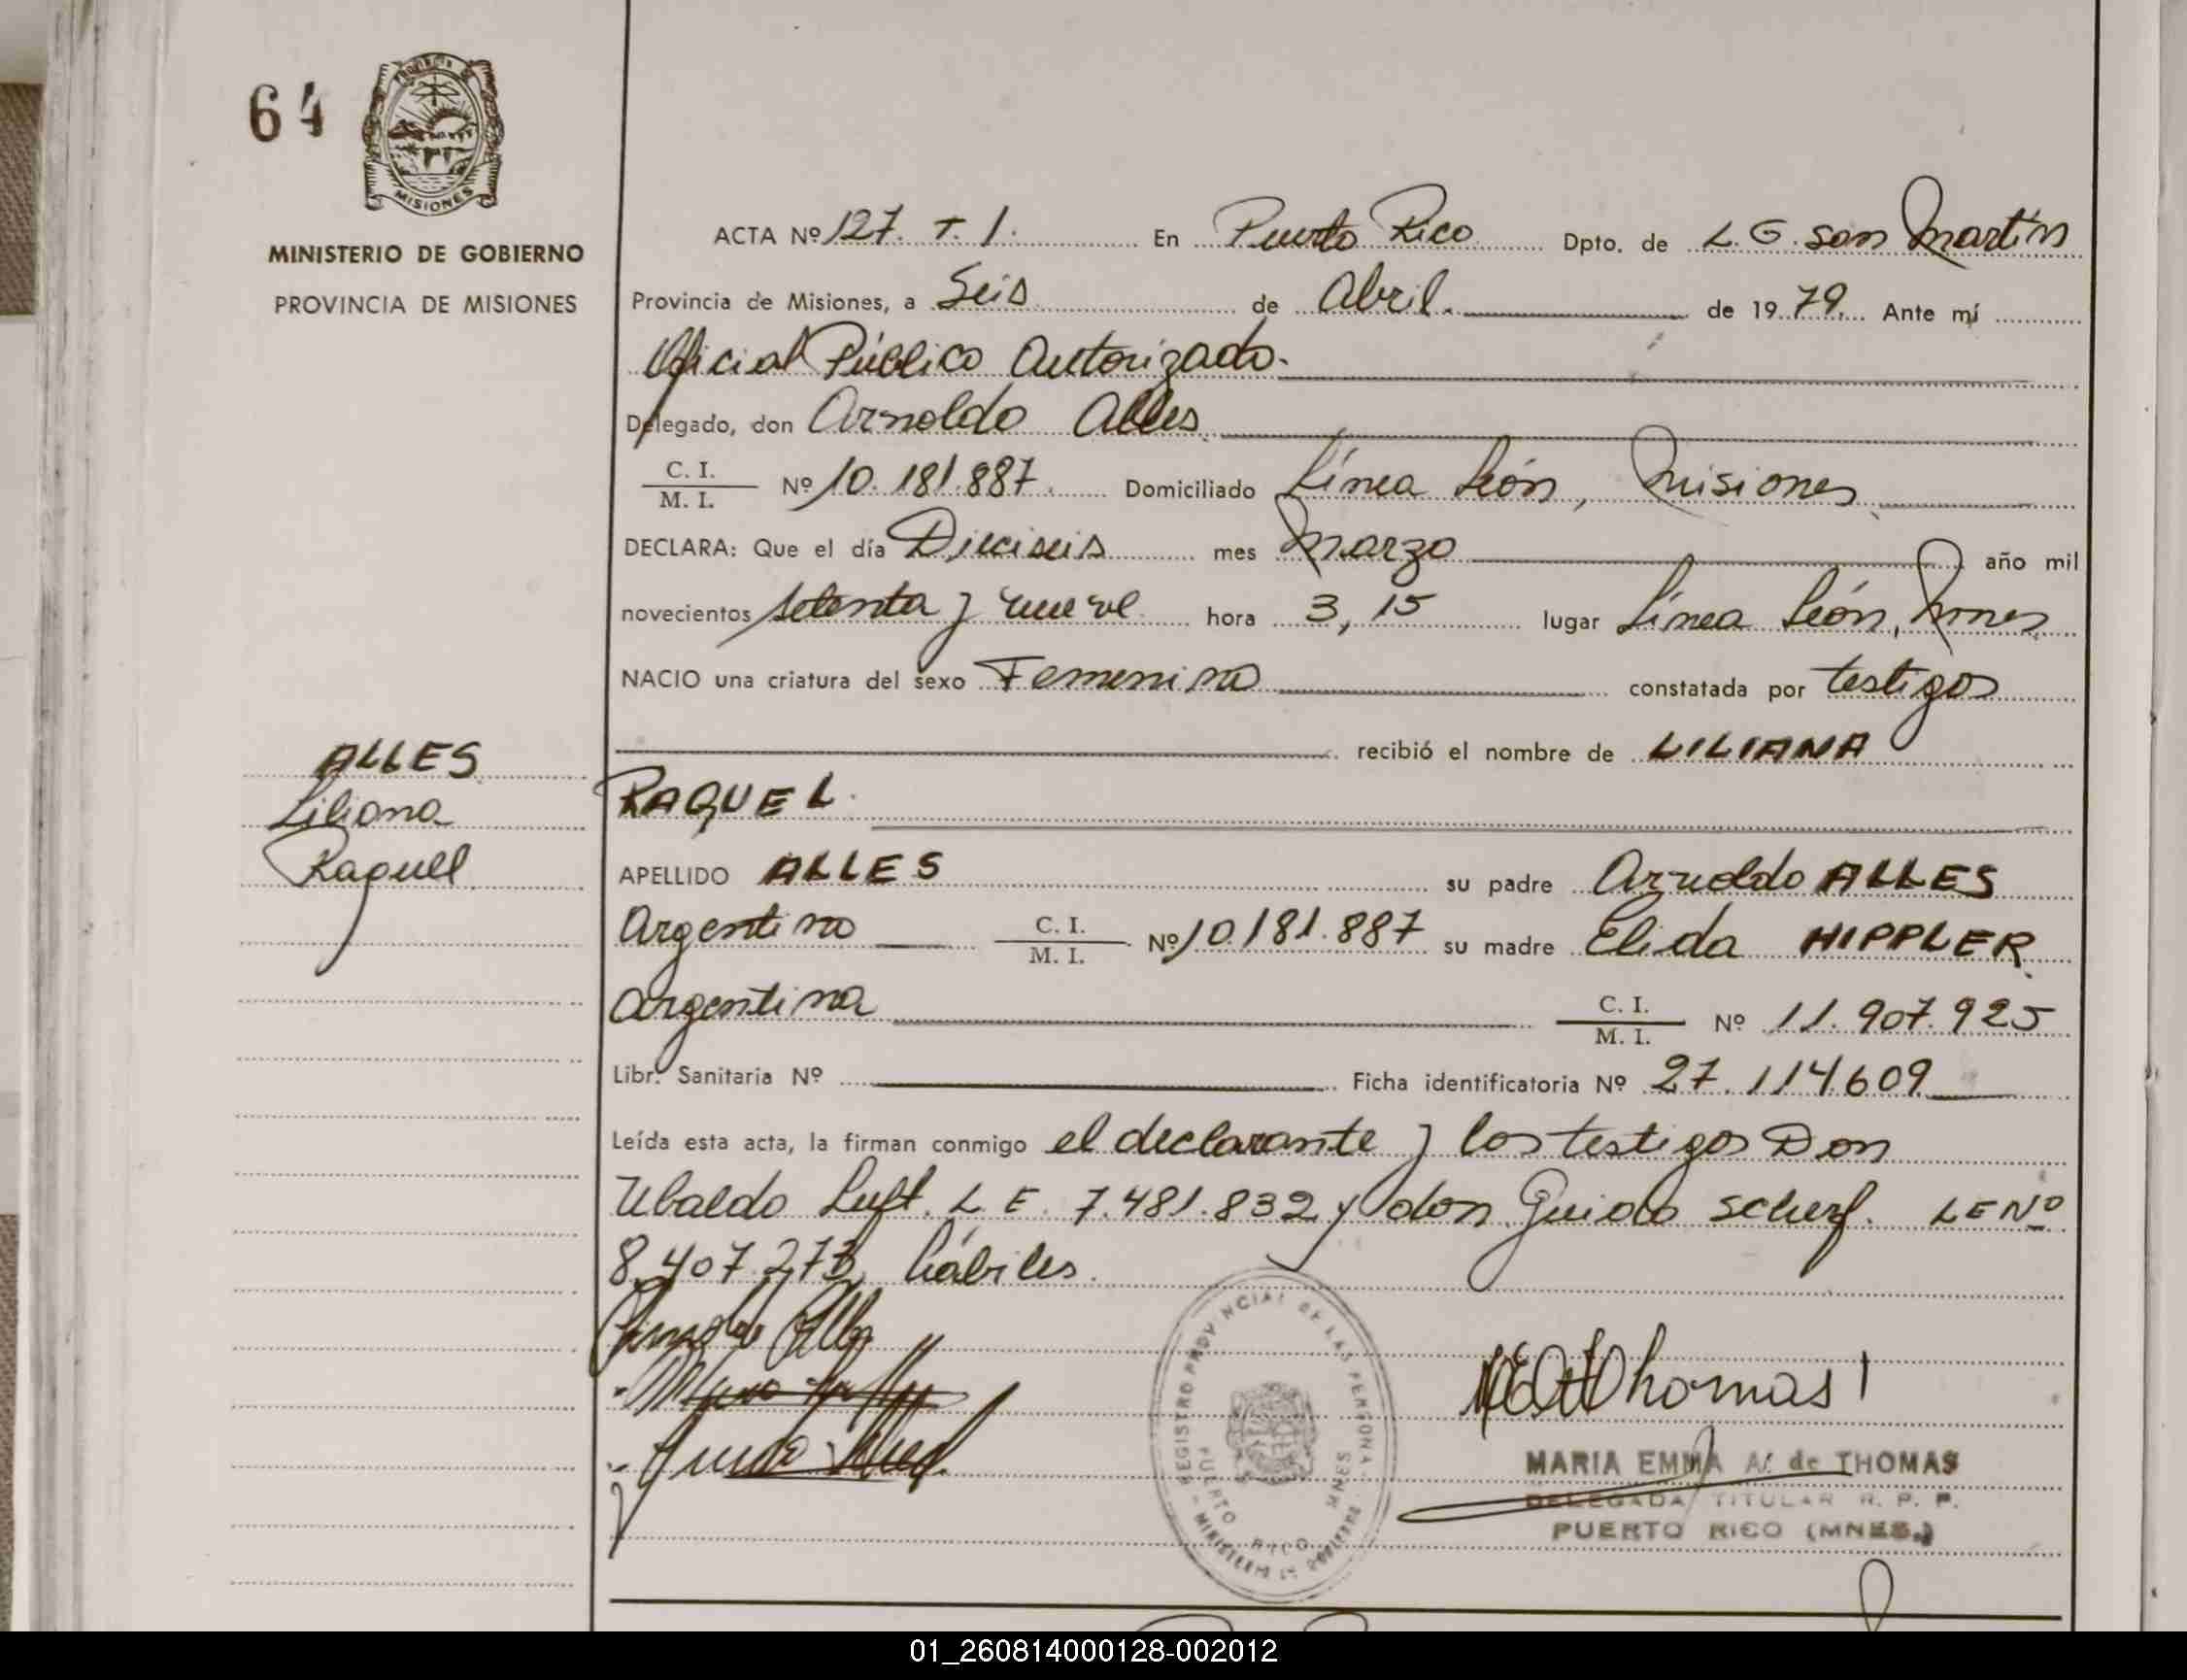 64
PROVINCIA DE
MISIONES
MINISTERIO DE GOBIERNO
PROVINCIA DE MISIONES
ACTA Nº 127. T. 1. En Puerto Rico Dpto. de L. G. San Martín
Provincia de Misiones, a Seis de Abril. de 1979. Ante mí
Oficial Público Autorizado.
Delegado, don Arnoldo Alles
C. I.
M. I. Nº 10.181.887. Domiciliado Línea León, Misiones
DECLARA: Que el día Dieciseis mes Marzo año mil
novecientos setenta y nueve hora 3,15 lugar Línea León, Mnes
NACIO una criatura del sexo Femenino constatada por testigos
recibió el nombre de LILIANA
RAQUEL.
ALLES
Liliana
Raquel
APELLIDO ALLES su padre Arnoldo ALLES
Argentino C. I.
M. I. Nº 10.181.887 su madre Elida HIPPLER
argentina C. I.
M. I. Nº 11.907.925
Libr. Sanitaria Nº Ficha identificatoria Nº 27.114.609
Leída esta acta, la firman conmigo el declarante y los testigos Don
Ubaldo Luft. L.E. 7.481.832 y don Guido Scherf. LE Nº
8.407.273, hábiles.
REGISTRO PROVINCIAL DE LAS PERSONAS
MINISTERIO DE GOBIERNO
PUERTO RICO MNES
Thomas
MARIA EMMA A. de THOMAS
DELEGADA TITULAR R. P. P.
PUERTO RICO (MNES.)
01_260814000128-002012